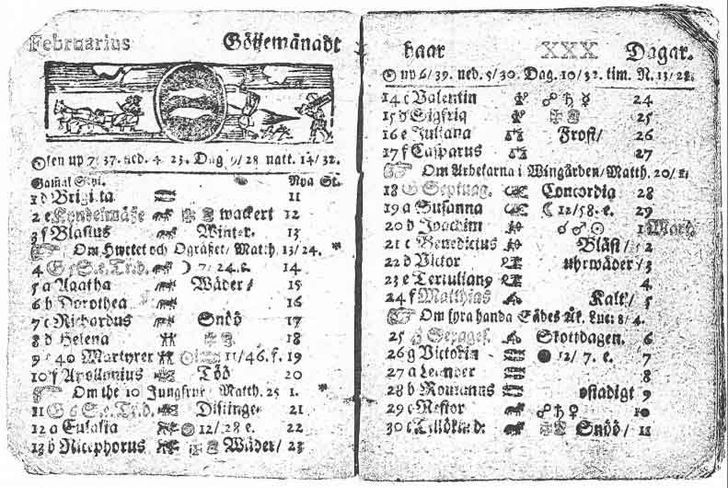 Februarius Götzemånadt
Solen up 7/37. ned. 4. 23. Dag 9/28 natt. 14/32.
Gamal Styl. Nya St.
1 d Brigitta 11
2 e Kyndelmässe wackert 12
3 f Blasius Winter. 13
Om Hwetet och Ogräset/ Matth. 13/24. *
4 G 5 S. e. Tr. D. 7/24. e. 14
5 a Agatha Wäder/ 15
6 b Dorothea 16
7 c Richardus Snöö 17
8 d Helena 18
9 e 40 Martyrer 11/46. f. 19
10 f Apollonius Töö 20
Om the 10 Jungfrur/ Matth. 25 1. *
11 G 6 S. e. Tr. D. Distinge. 21
12 a Eulalia 12/28 e. 22
13 b Nicephorus Wäder/ 23
haar XXX Dagar.
☉ up 6/39. ned. 5/30. Dag. 10/32. tim. N. 13/28.
14 c Valentin ☍ ♄ ☿ 24
15 d Sigfrid 25
16 e Juliana Frost/ 26
17 f Casparus 27
Om Arbetarna i Wingården/Matth. 20/1.
18 G Septuag. Concordia 28
19 a Susanna ☾ 12/58. e. 29
20 b Joachim ☌ ♂ ☉ 1 Mart.
21 c Benedictus Blåst/ 2
22 d Victor uhrwäder/ 3
23 e Tertulianq 4
24 f Matthias Kalt/ 5
Om fyra handa Sädes Åk. Luc: 8/4.
25 G Sexages. Skottdagen. 6
26 g Victorin ● 12/ 7. e. 7
27 a Leander 8
28 b Romanus ostadigt 9
29 c Nestor ☍ ♄ ♀ 10
30 c Tillökn.d: Snöö/ 11